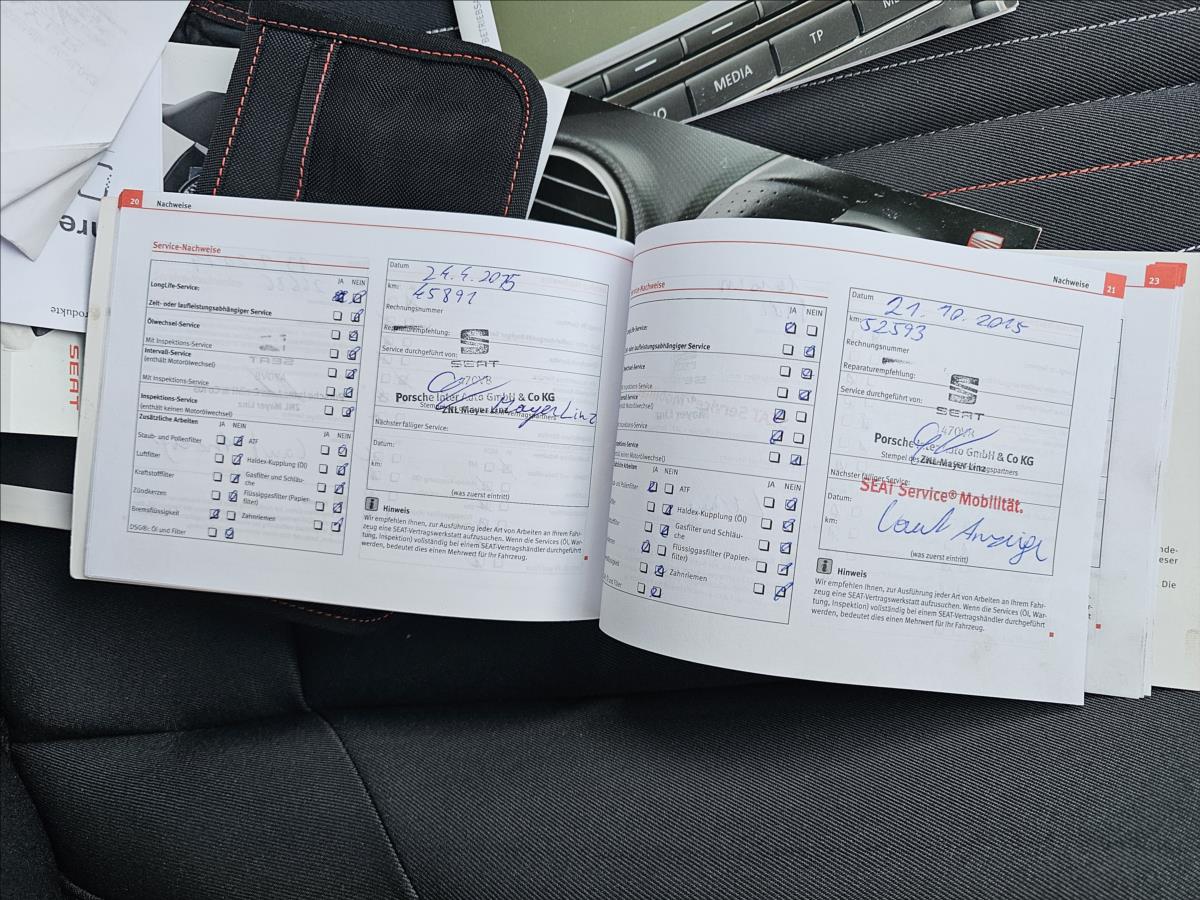 BETRIEBS
MEDIA
TP
hre
odukte
SEAT
20 Nachweise
Service-Nachweise
JA NEIN
LongLife-Service:
Zeit- oder laufleistungsabhängiger Service
Ölwechsel-Service
Mit Inspektions-Service
Intervall-Service
(enthält Motorölwechsel)
Mit Inspektions-Service
Inspektions-Service
(enthält keinen Motorölwechsel)
Zusätzliche Arbeiten
JA NEIN JA NEIN
Staub- und Pollenfilter ATF
Luftfilter Haldex-Kupplung (Öl)
Kraftstofffilter Gasfilter und Schläu-
che
Zündkerzen Flüssiggasfilter (Papier-
filter)
Bremsflüssigkeit Zahnriemen
DSG®: Öl und Filter
Datum 24.4.2015
km: 45891
Rechnungsnummer
Reparaturempfehlung:
Service durchgeführt von:
SEAT
470VB
Porsche Inter Auto GmbH & Co KG
ZNL Mayer Linz
Mayer Linz
Nächster fälliger Service:
Datum:
km:
(was zuerst eintritt)
Hinweis
Wir empfehlen Ihnen, zur Ausführung jeder Art von Arbeiten an Ihrem Fahr-
zeug eine SEAT-Vertragswerkstatt aufzusuchen. Wenn die Services (Öl, War-
tung, Inspektion) vollständig bei einem SEAT-Vertragshändler durchgeführt
werden, bedeutet dies einen Mehrwert für Ihr Fahrzeug.
Nachweise 21
rvice-Nachweise
JA NEIN
ngLife-Service:
t- oder laufleistungsabhängiger Service
wechsel-Service
nspektions-Service
rvall-Service
ält Motorölwechsel)
nspektions-Service
ktions-Service
t keinen Motorölwechsel)
zliche Arbeiten
JA NEIN JA NEIN
nd Pollenfilter ATF
Haldex-Kupplung (Öl)
Gasfilter und Schläu-
che
Flüssiggasfilter (Papier-
filter)
Zahnriemen
Datum 21.10.2015
km: 52593
Rechnungsnummer
Reparaturempfehlung:
Service durchgeführt von:
SEAT
470VB
Porsche Inter Auto GmbH & Co KG
ZNL Mayer Linz
Stempel des Vertragspartners
Nächster fälliger Service:
SEAT Service® Mobilität.
Datum:
km: laut Anzeige
(was zuerst eintritt)
Hinweis
Wir empfehlen Ihnen, zur Ausführung jeder Art von Arbeiten an Ihrem Fahr-
zeug eine SEAT-Vertragswerkstatt aufzusuchen. Wenn die Services (Öl, War-
tung, Inspektion) vollständig bei einem SEAT-Vertragshändler durchgeführt
werden, bedeutet dies einen Mehrwert für Ihr Fahrzeug.
23
nde-
eser
Die